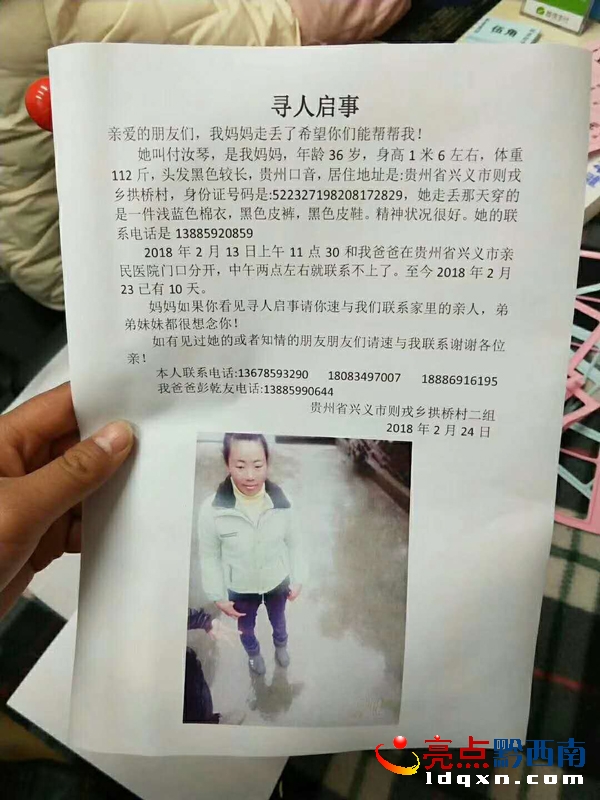 伍角
寻人启事
亲爱的朋友们，我妈妈走丢了希望你们能帮帮我！
她叫付汝琴，是我妈妈，年龄 36 岁，身高 1 米 6 左右，体重
112 斤，头发黑色较长，贵州口音，居住地址是:贵州省兴义市则戎
乡拱桥村，身份证号码是:522327198208172829，她走丢那天穿的
是一件浅蓝色棉衣，黑色皮裤，黑色皮鞋。精神状况很好。她的联
系电话是 13885920859
2018 年 2 月 13 日上午 11 点 30 和我爸爸在贵州省兴义市亲
民医院门口分开，中午两点左右就联系不上了。至今 2018 年 2 月
23 已有 10 天。
妈妈如果你看见寻人启事请你速与我们联系家里的亲人，弟
弟妹妹都很想念你！
如有见过她的或者知情的朋友朋友们请速与我联系谢谢各位
亲！
本人联系电话:13678593290 18083497007 18886916195
我爸爸彭乾友电话:13885990644
贵州省兴义市则戎乡拱桥村二组
2018 年 2 月 24 日
亮点黔西南
ldqxn.com